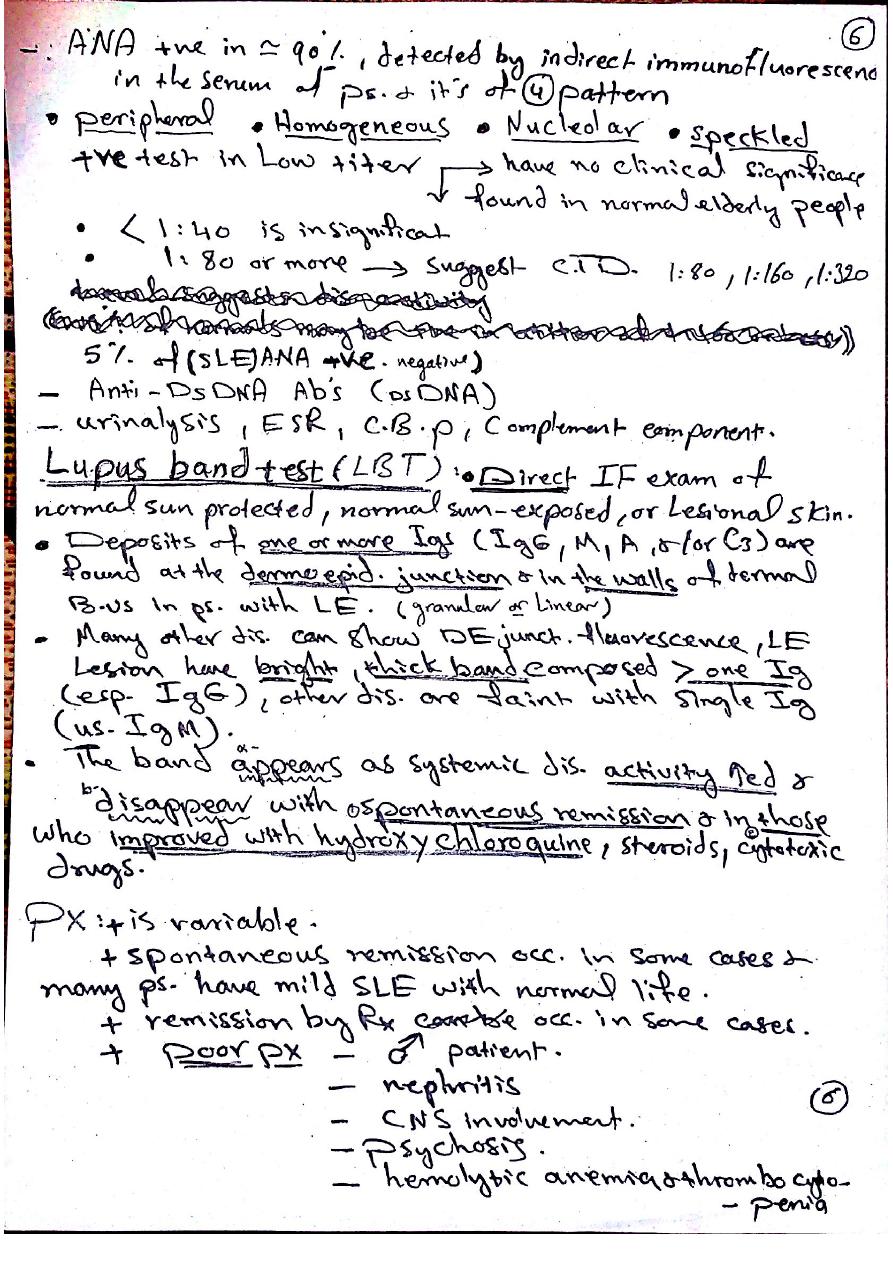 6
- ANA +ve in ≃ 90%, detected by indirect immunofluorescenc
in the serum of ps. & it's of 4 pattern
• peripheral • Homogeneous • Nucleolar • speckled
+ve test in Low titer → have no clinical significace
↓ found in normal elderly people
• < 1:40 is insignificat
• 1:80 or more → suggest C.T.D. 1:80, 1:160, 1:320
5% of (SLE) ANA +ve. negative)
- Anti-DsDNA Ab's (DsDNA)
- urinalysis, ESR, C.B.p, Complement component.
Lupus band test (LBT): • Direct IF exam of
normal sun protected, normal sun-exposed, or Lesional skin.
• Deposits of one or more Igs (IgG, M, A, &/or C3) are
found at the dermoepid. junction & in the walls of dermal
B.vs in ps. with LE. (granular or Linear)
• Many other dis. can show DE junct. fluorescence, LE
Lesion have bright, thick band composed > one Ig
(esp. IgG), other dis. are faint with single Ig
(us. IgM).
• The band a- appears as systemic dis. activity ↑ed &
b- disappear with ospontaneous remission & in those
who improved with hydroxychloroquine, steroids, & cytotoxic
drugs.
PX: + is variable.
+ spontaneous remission occ. in some cases &
many ps. have mild SLE with normal life.
+ remission by Rx occ. in some cases.
+ poor px - ♂ patient.
- nephritis
- CNS involvement.
- psychosis.
- hemolytic anemia & thrombocyto-
- penia
6